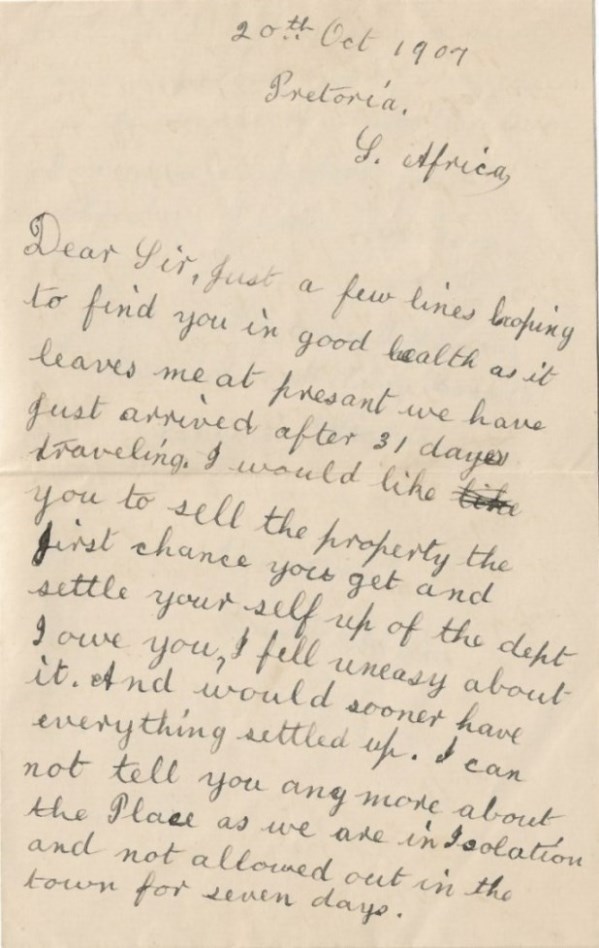 20th Oct 1907
Pretoria.
S. Africa,
Dear Sir, Just a few lines hoping
to find you in good health as it
leaves me at presant we have
Just arrived after 31 days
traveling. I would like ~~like~~
you to sell the property the
first chance you get and
settle your self up of the dept
I owe you, I fell uneasy about
it. And would sooner have
everything settled up. I can
not tell you any more about
the Place as we are in Isolation
and not allowed out in the
town for seven days.